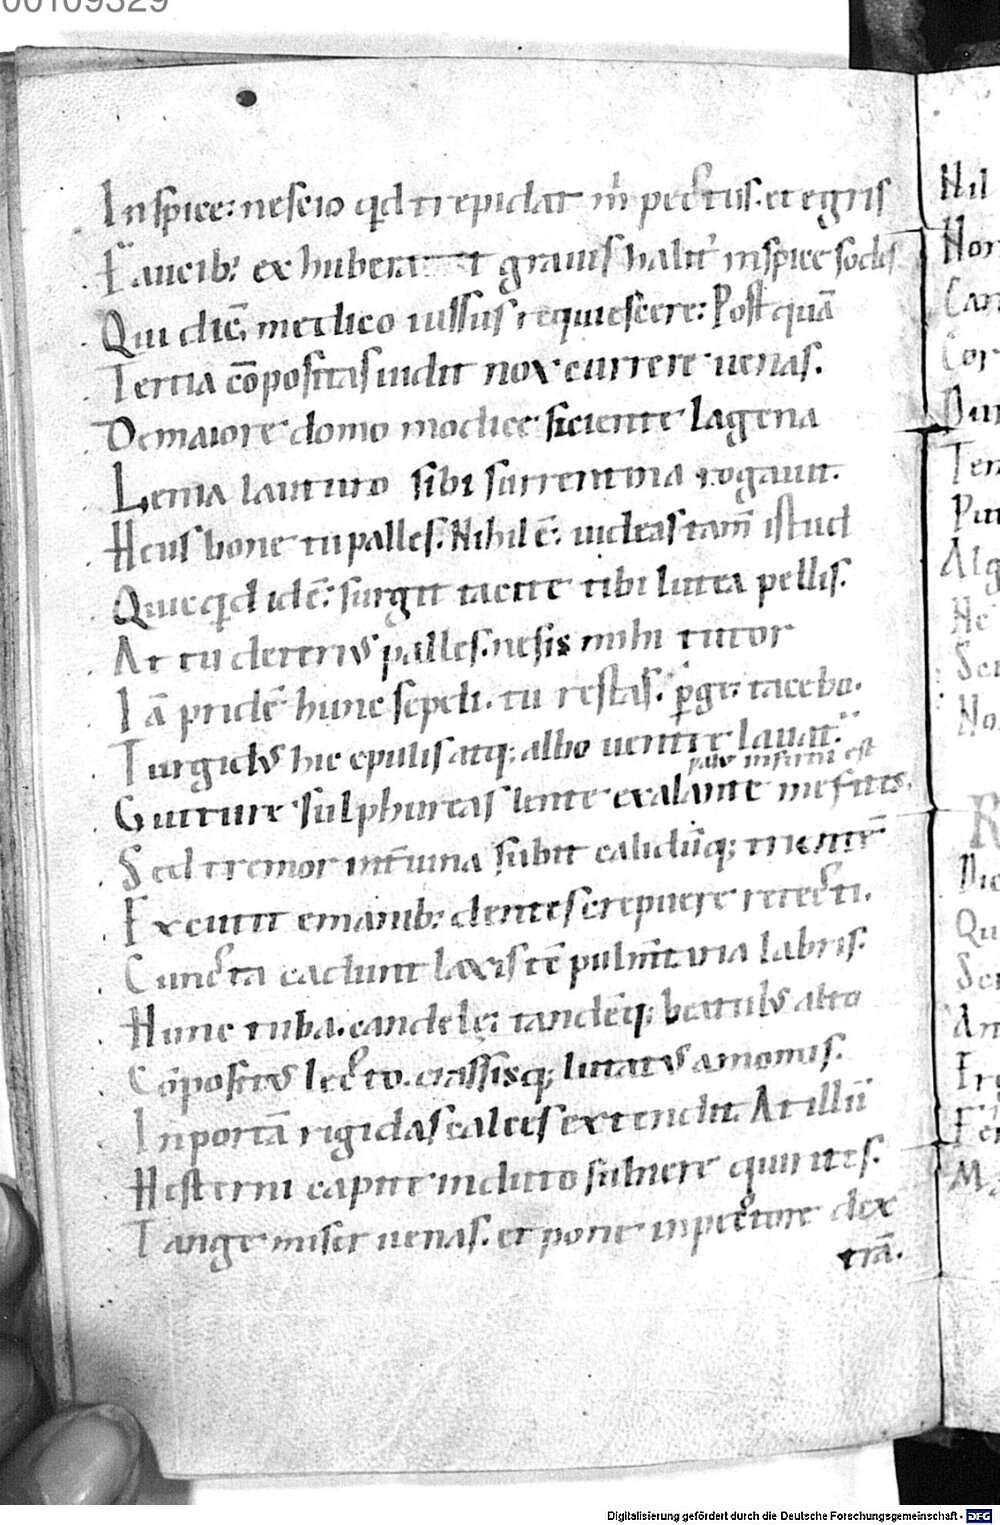 00109329
Inspice: nescio qd trepidat m̄ pectus. et egris
Faucib; exhuberat grauis halit᾽ inspice sodes
Qui dic̄ medico iussus requiescere: Postquā
Tertia cōpositas uidit nox currere uenas.
De maiore domo modice siciente lagena
Lenia lauturo sibi surrentina rogauit.
Heus bone tu palles. Nihil ē: uideas tam̄ istud
Quicqd id ē: surgit tacite tibi lutea pellis.
At tu deteri᾽ palles. ne sis mihi tutor
Iā pridē hunc sepeli. tu restas. pge: tacebo.
Turgid᾽ hic epulis atq; albo uentre lauat᾽
palus inferni est
Gutture sulphureas lente exalante mefites.
Sed tremor int̄ uina subit calidūq; trientē
Excutit e manib; dentes crepuere retecti.
Cuncta cadunt laxis tc̄ pulm̄taria labris.
Hinc tuba. candelę; tandēq; beatul᾽ alto
Cōposit᾽ lecto. crassisq; lutat᾽ amomis.
In portā rigidas calces extendit. At illū
Hesterni capite induto subiere quirites.
Tange miser uenas. et pone in pectore dex
trā.
Nil
Digitalisierung gefördert durch die Deutsche Forschungsgemeinschaft - DFG